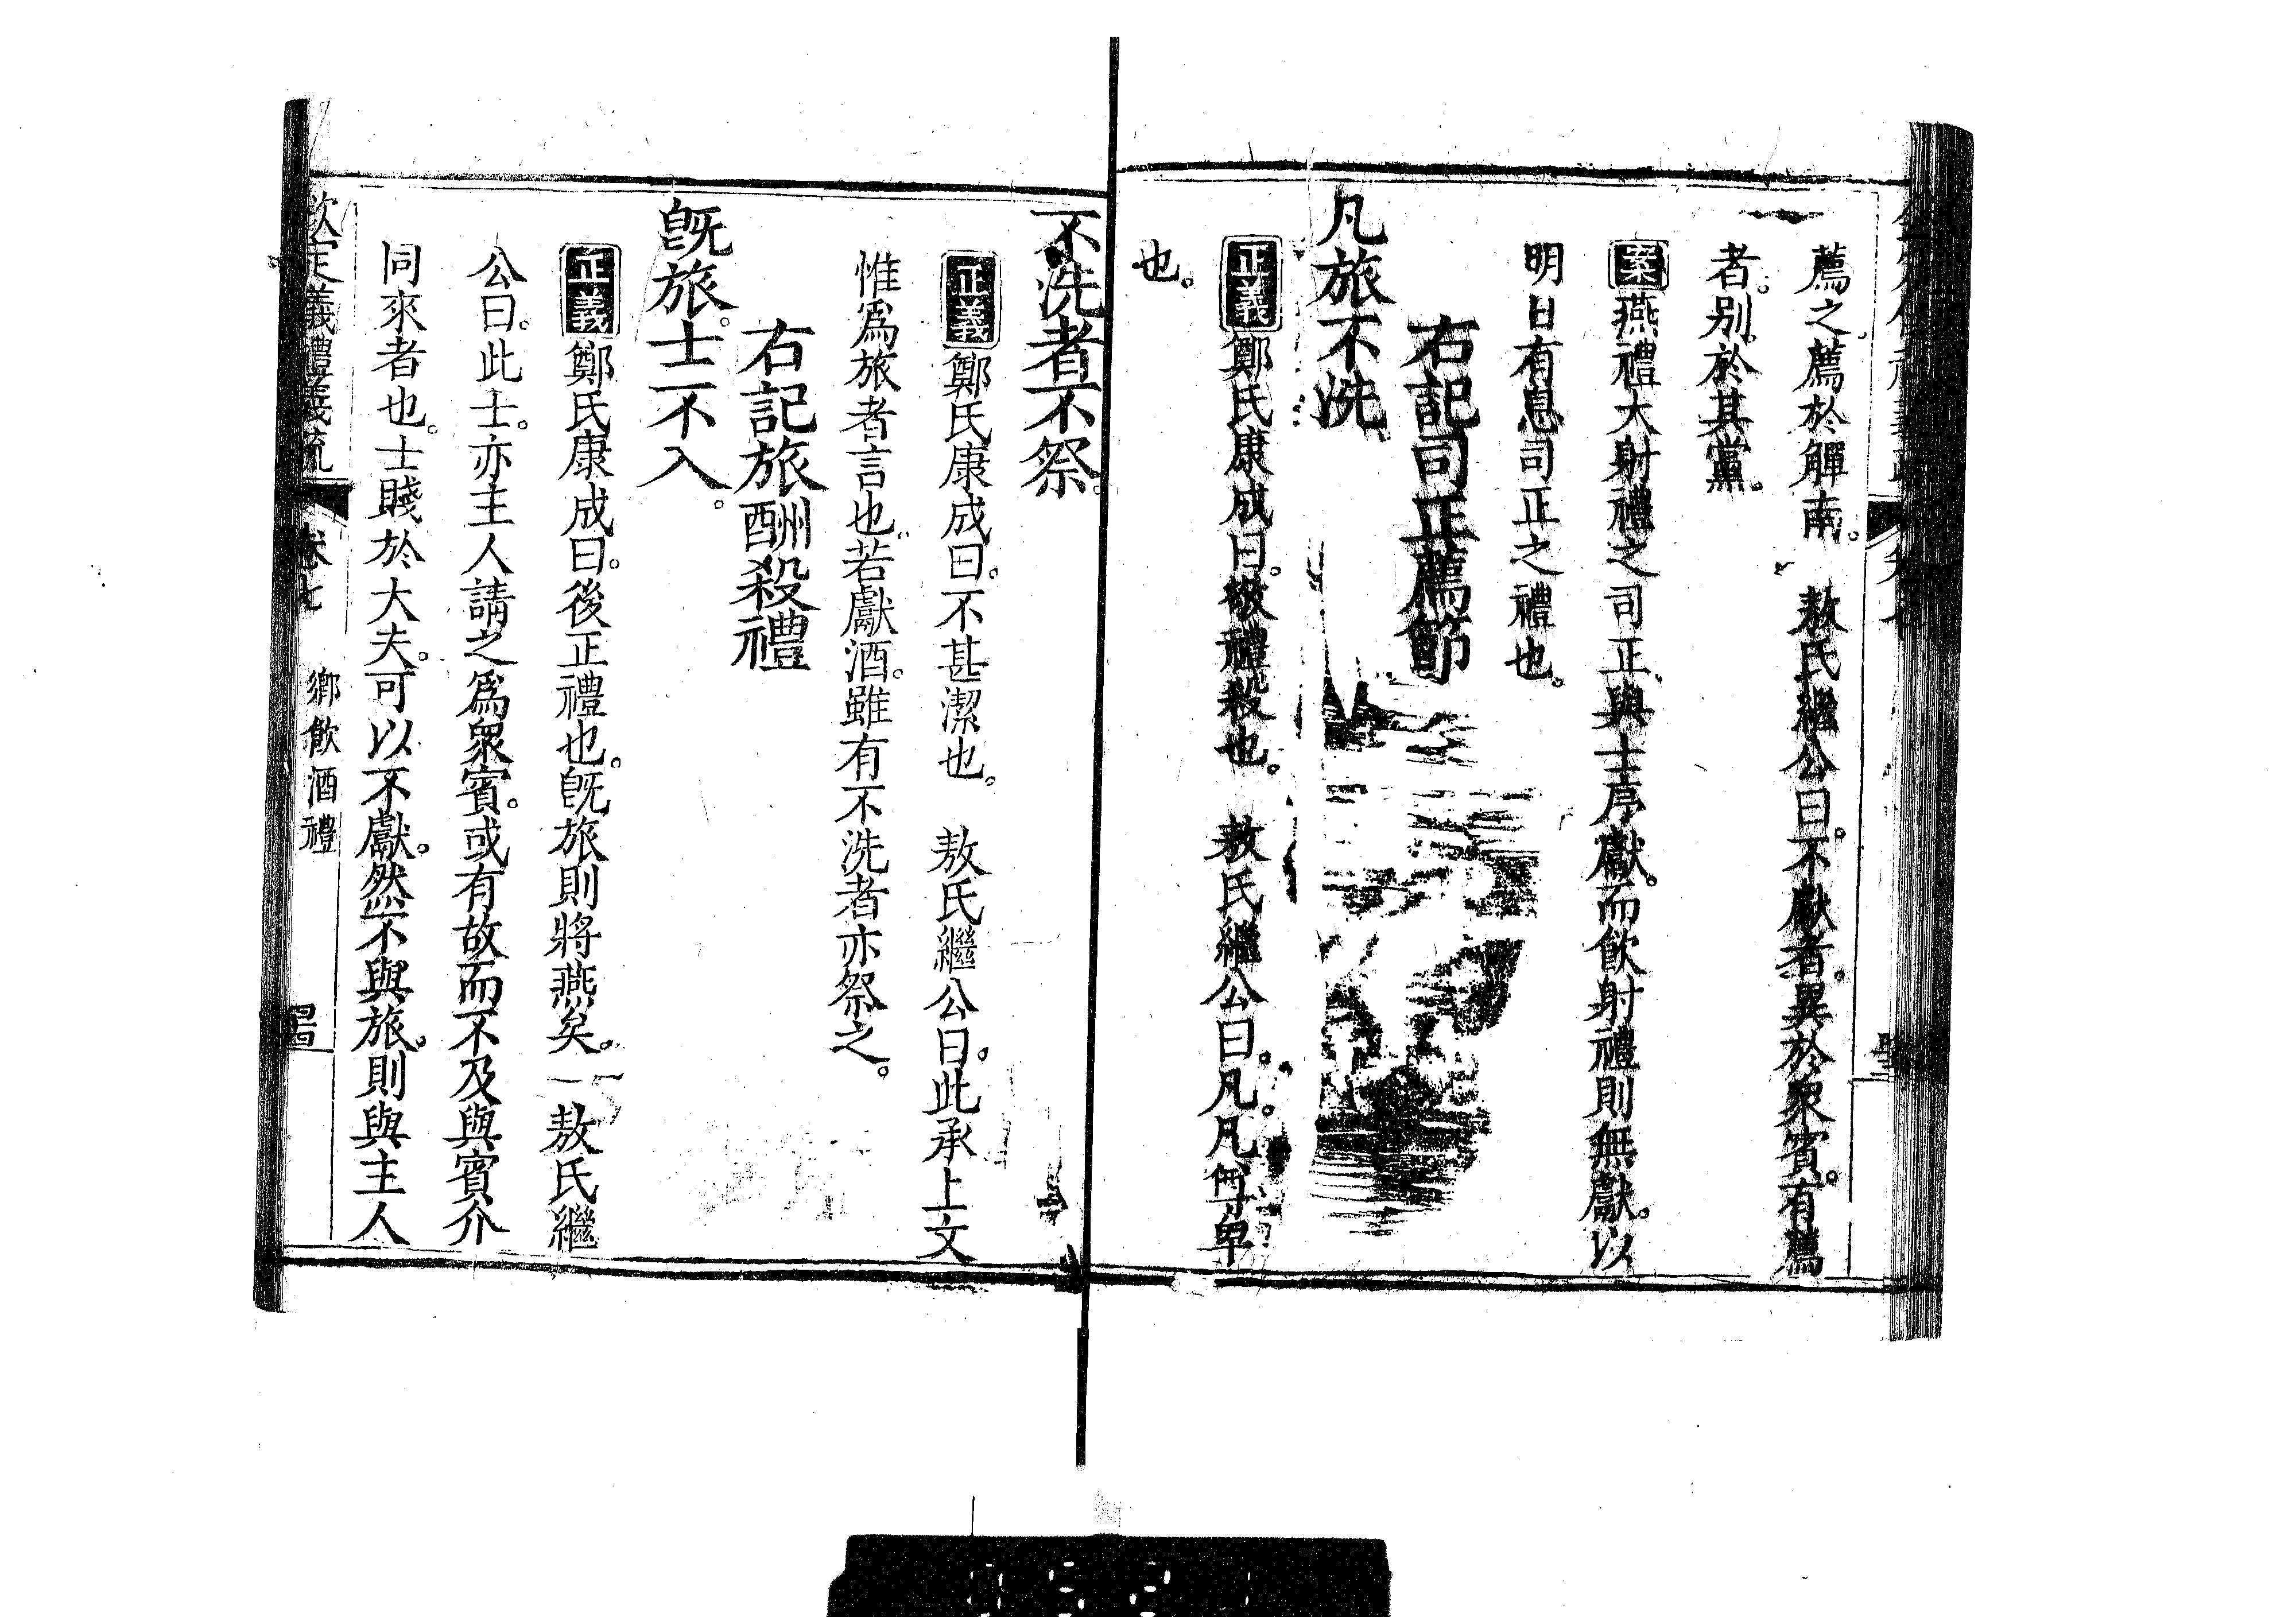 薦之薦於觶南。　敖氏繼公曰。不獻者。異於衆賓。有薦
者。別於其黨。
案燕禮大射禮之司正與士序獻。而飲射禮則無獻。以
明日有息司正之禮也。
右記司正薦節
凡旅不洗
正義鄭氏康成曰。敬禮殺也。　敖氏繼公曰。凡。凡尊卑
也。
不洗者不祭。
正義鄭氏康成曰。不甚潔也。　敖氏繼公曰。此承上文
惟爲旅者言也。若獻酒。雖有不洗者亦祭之。
右記旅酬殺禮
旣旅。士不入。
正義鄭氏康成曰。後正禮也。旣旅則將燕矣。　敖氏繼
公曰。此士。亦主人請之爲衆賓。或有故而不及與賓介
同來者也。士賤於大夫。可以不獻。然不與旅。則與主人
欽定義禮義疏　卷七　鄉飲酒禮